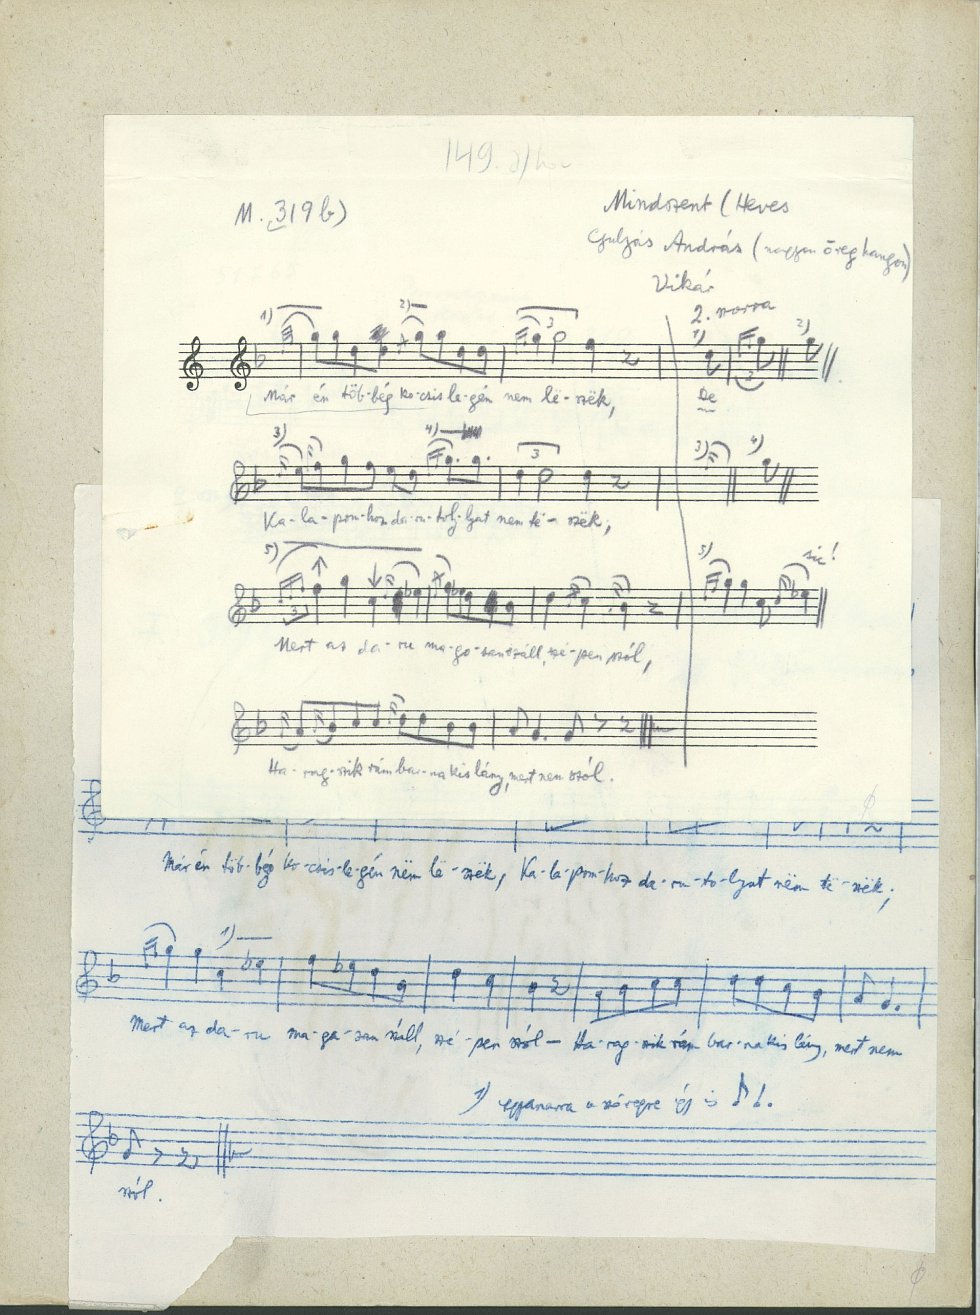 149.
M. 319 b)
Mindszent (Heves
Gulyás András (nagyon öreg hangon)
Vikár
2. versre
1) 2) 3 1) 2)
Már én töb-bég ko-csis le-gén nem lë-szëk,
De
3) 4) 3 3) 4)
Ka-la-pom-hoz da-ru-toly-lyat nem të-szëk,
5) 3 5) sic!
Mert az da-ru ma-go-san száll, szé-pen szól,
Ha-rag-szik rám bar-na kis lány, mert nem szól.
Már én töb-bég ko-csis-le-gén nëm lë-szëk, Ka-la-pom-hoz da-ru-to-lyat nëm të-szëk;
1)
Mert az da-ru ma-ga-san száll, szé-pen szól – Ha-rag-szik rám bar-na kis lány, mert nem
1) ugyanarra a szövegre így is
szól.